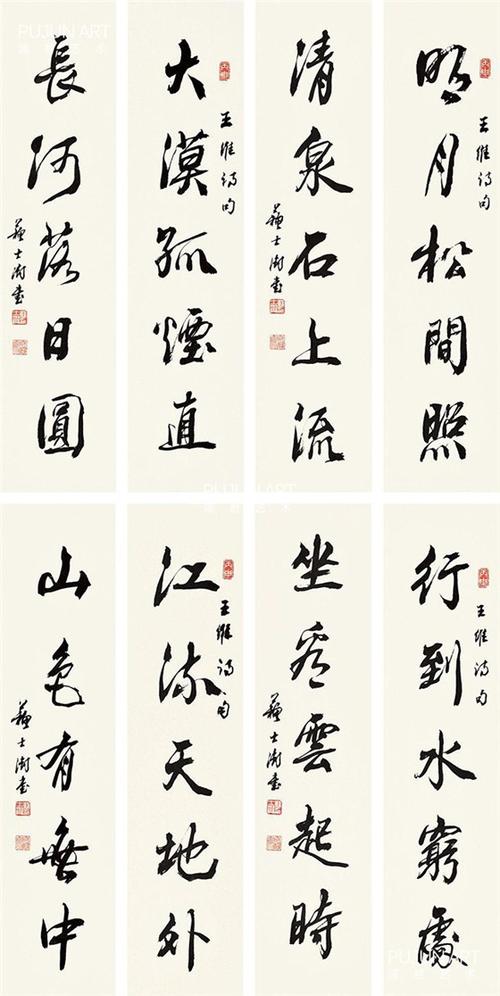 明月松間照
王維詩句
清泉石上流
蘇士澍書
大漠孤煙直
王維詩句
長河落日圓
蘇士澍書
行到水窮處
王維詩句
坐看雲起時
蘇士澍書
江流天地外
王維詩句
山色有無中
蘇士澍書
PUJUN ART
PUJUN ART
PUJUN ART